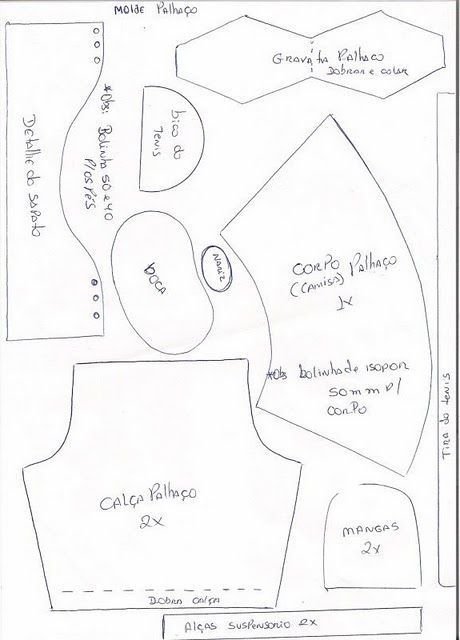 MOLDE PALHAÇO
GRAVATA PALHAÇO
DOBRAR E COLAR
*Obs: Bolinha 50 e 40
P/OS PÉS
bico do
TENIS
Detalhe do SAPATO
BOCA
NARIZ
CORPO PALHAÇO
(CAMISA)
1x
*Obs bolinha de isopor
50 mm p/
CORPO
TIRA do TENIS
CALÇA PALHAÇO
2x
DOBRA CALÇA
MANGAS
2x
ALÇAS SUSPENSORIO 2x